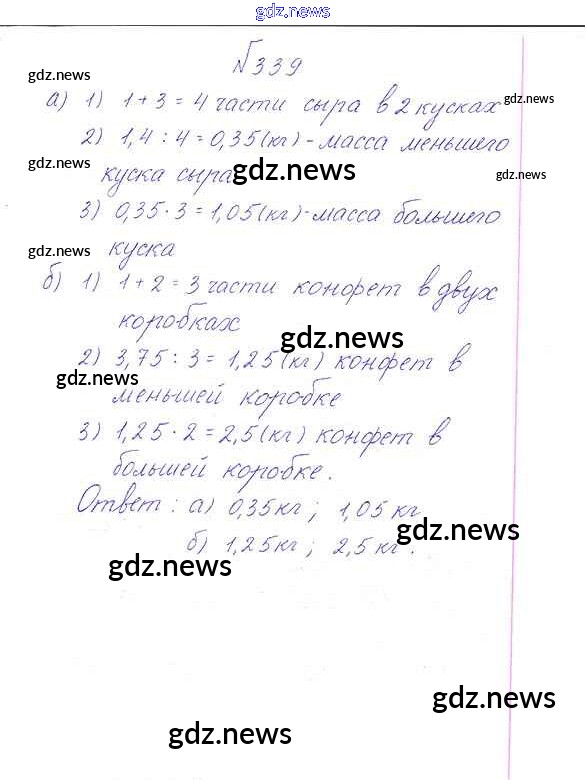 gdz.news
№ 339
gdz.news
а) 1) 1 + 3 = 4 части сыра в 2 кусках
gdz.news
2) 1,4 : 4 = 0,35 (кг) - масса меньшего
gdz.news
куска сыра
gdz.news
gdz.news
3) 0,35 · 3 = 1,05 (кг) - масса большего
gdz.news
куска
б) 1) 1 + 2 = 3 части конфет в двух
коробках
gdz.news
2) 3,75 : 3 = 1,25 (кг) конфет в
gdz.news
меньшей коробке
3) 1,25 · 2 = 2,5 (кг) конфет в
большей коробке.
Ответ: а) 0,35 кг ; 1,05 кг
gdz.news
б) 1,25 кг ; 2,5 кг .
gdz.news
gdz.news
gdz.news